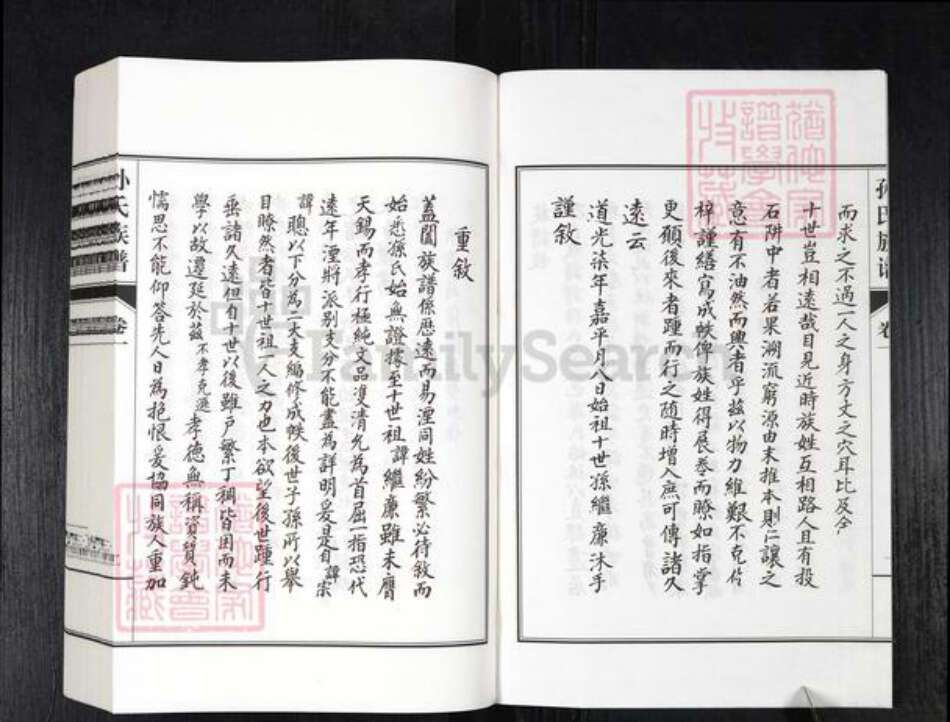 而求之不過一人之身方丈之穴耳比及今
十世豈相遠哉目見近時族姓互相路人且有投
石阱中者若果溯流窮源由末推本則仁讓之
意有不油然而興者乎茲以物力維艱不克付
梓謹繕寫成帙俾族姓得展卷而瞭如指掌
更願後來者踵而行之随時增入庶可傳諸久
遠云
道光柒年嘉平月八日始祖十世孫繼廉沐手
謹敘
重敘
蓋聞族譜係歷遠而易湮同姓紛繁必待敘而
始悉孫氏始無證據至十世祖諱繼廉雖未膺
天錫而孝行極純文品雙清允為首屈一指恐代
遠年湮將派别支分不能盡為詳明爰是自諱宗
諱聰以下分為二大支編修成帙後世子孫所以舉
目瞭然者皆十世祖一人之力也本欲望後世踵行
垂諸久遠但自十世以後雖戶繁丁稠皆因而未
學以故遷延於茲不孝克遜孝德無稱資質鈍
懦思不能仰答先人日為抱恨爰協同族人重加
孙氏族譜
卷一
FamilySearch